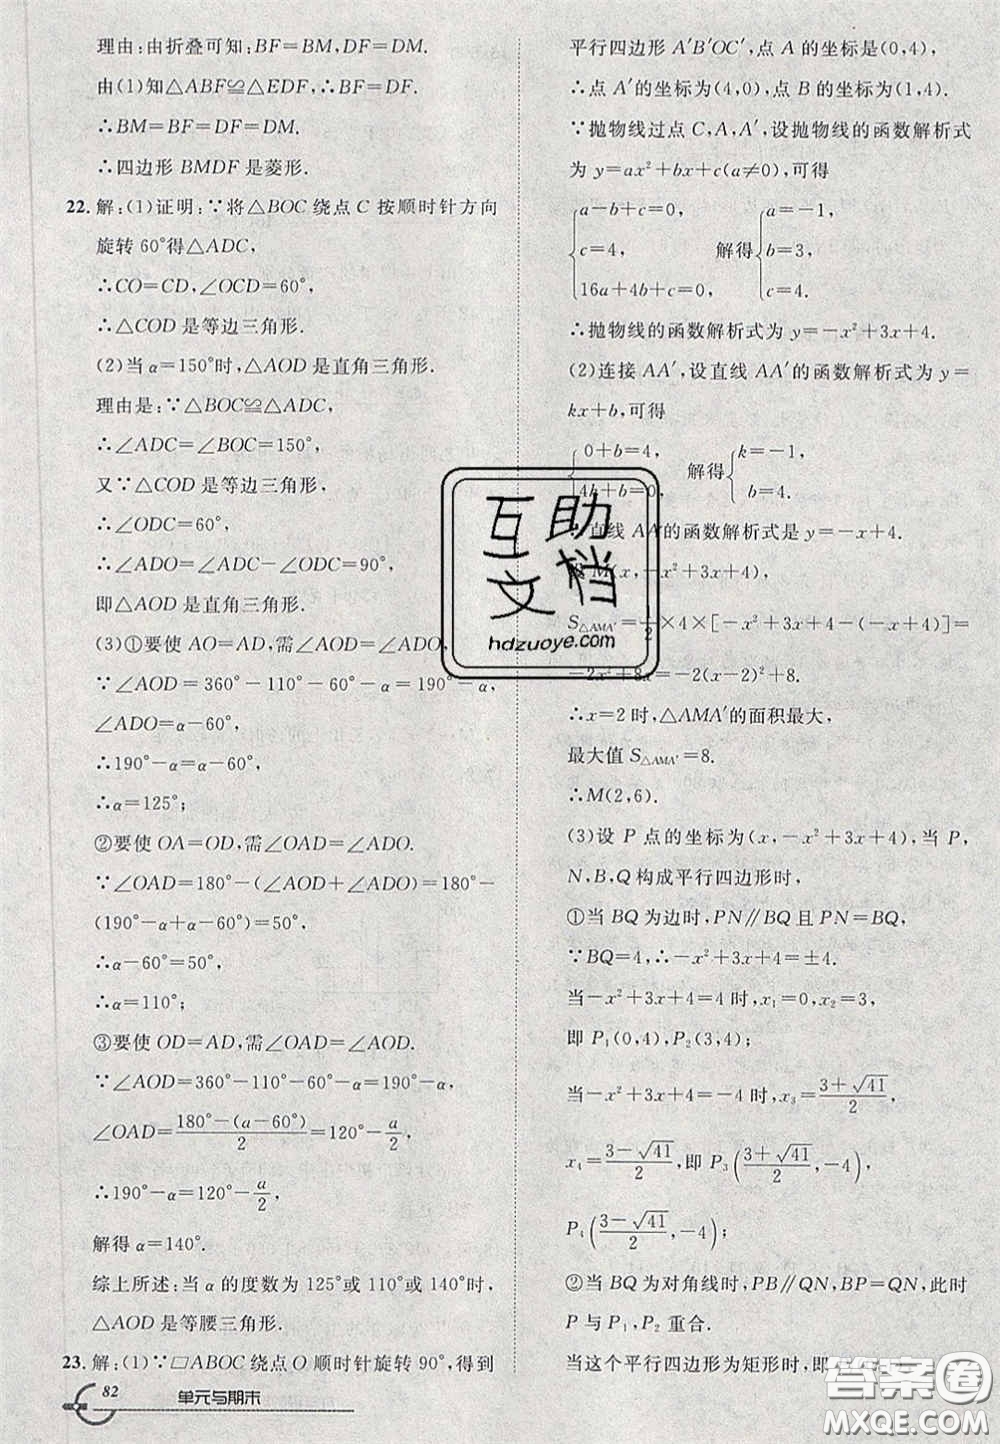 理由:由折叠可知:BF=BM,DF=DM.
由(1)知△ABF≌△EDF,∴BF=DF.
∴BM=BF=DF=DM.
∴四边形 BMDF 是菱形.
22. 解:(1)证明:∵将△BOC 绕点 C 按顺时针方向
旋转 60°得△ADC,
∴CO=CD,∠OCD=60°,
∴△COD 是等边三角形.
(2)当 α=150°时,△AOD 是直角三角形.
理由是:∵△BOC≌△ADC,
∴∠ADC=∠BOC=150°,
又∵△COD 是等边三角形,
∴∠ODC=60°,
∴∠ADO=∠ADC-∠ODC=90°,
即△AOD 是直角三角形.
(3)①要使 AO=AD,需∠AOD=∠ADO,
∵∠AOD=360°-110°-60°-α=190°-α,
∠ADO=α-60°,
∴190°-α=α-60°,
∴α=125°;
②要使 OA=OD,需∠OAD=∠ADO.
∵∠OAD=180°-(∠AOD+∠ADO)=180°-
(190°-α+α-60°)=50°,
∴α-60°=50°,
∴α=110°;
③要使 OD=AD,需∠OAD=∠AOD.
∵∠AOD=360°-110°-60°-α=190°-α,
∠OAD=\frac{180°-(a-60°)}{2}=120°-\frac{a}{2},
∴190°-α=120°-\frac{a}{2},
解得 α=140°.
综上所述:当 α 的度数为 125°或 110°或 140°时,
△AOD 是等腰三角形.
23. 解:(1)∵□ABOC 绕点 O 顺时针旋转 90°,得到
82
单元与期末
平行四边形 A′B′OC′,点 A 的坐标是(0,4),
∴点 A′的坐标为(4,0),点 B 的坐标为(1,4).
∵抛物线过点 C,A,A′,设抛物线的函数解析式
为 y=ax²+bx+c(a≠0),可得
{a-b+c=0, c=4, 16a+4b+c=0, 解得{a=-1, b=3, c=4.
∴抛物线的函数解析式为 y=-x²+3x+4.
(2)连接 AA′,设直线 AA′的函数解析式为 y=
kx+b,可得
{0+b=4, 4k+b=0, 解得{k=-1, b=4.
直线 AA′的函数解析式是 y=-x+4.
M(x,-x²+3x+4),
S△AMA′=\frac{1}{2}×4×[-x²+3x+4-(-x+4)]=
-2x²+8x=-2(x-2)²+8.
∴x=2 时,△AMA′的面积最大,
最大值 S△AMA′=8.
∴M(2,6).
(3)设 P 点的坐标为(x,-x²+3x+4),当 P,
N,B,Q 构成平行四边形时,
①当 BQ 为边时,PN∥BQ 且 PN=BQ,
∵BQ=4,∴-x²+3x+4=±4.
当-x²+3x+4=4 时,x₁=0,x₂=3,
即 P₁(0,4),P₂(3,4);
当-x²+3x+4=-4 时,x₃=\frac{3+√41}{2},
x₄=\frac{3-√41}{2},即 P₃(\frac{3+√41}{2},-4),
P₄(\frac{3-√41}{2},-4);
②当 BQ 为对角线时,PB∥QN,BP=QN,此时
P 与 P₁,P₂ 重合.
当这个平行四边形为矩形时,即
互助
文档
hdzuoye.com
答案圈
MXQE.COM